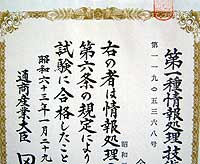 第一種情報処理技
第一一九〇五三六八号
昭和
右の者は情報処理
第六条の規定により
試験に合格したこと
昭和六十三年十一月二十九
通商産業大臣 田